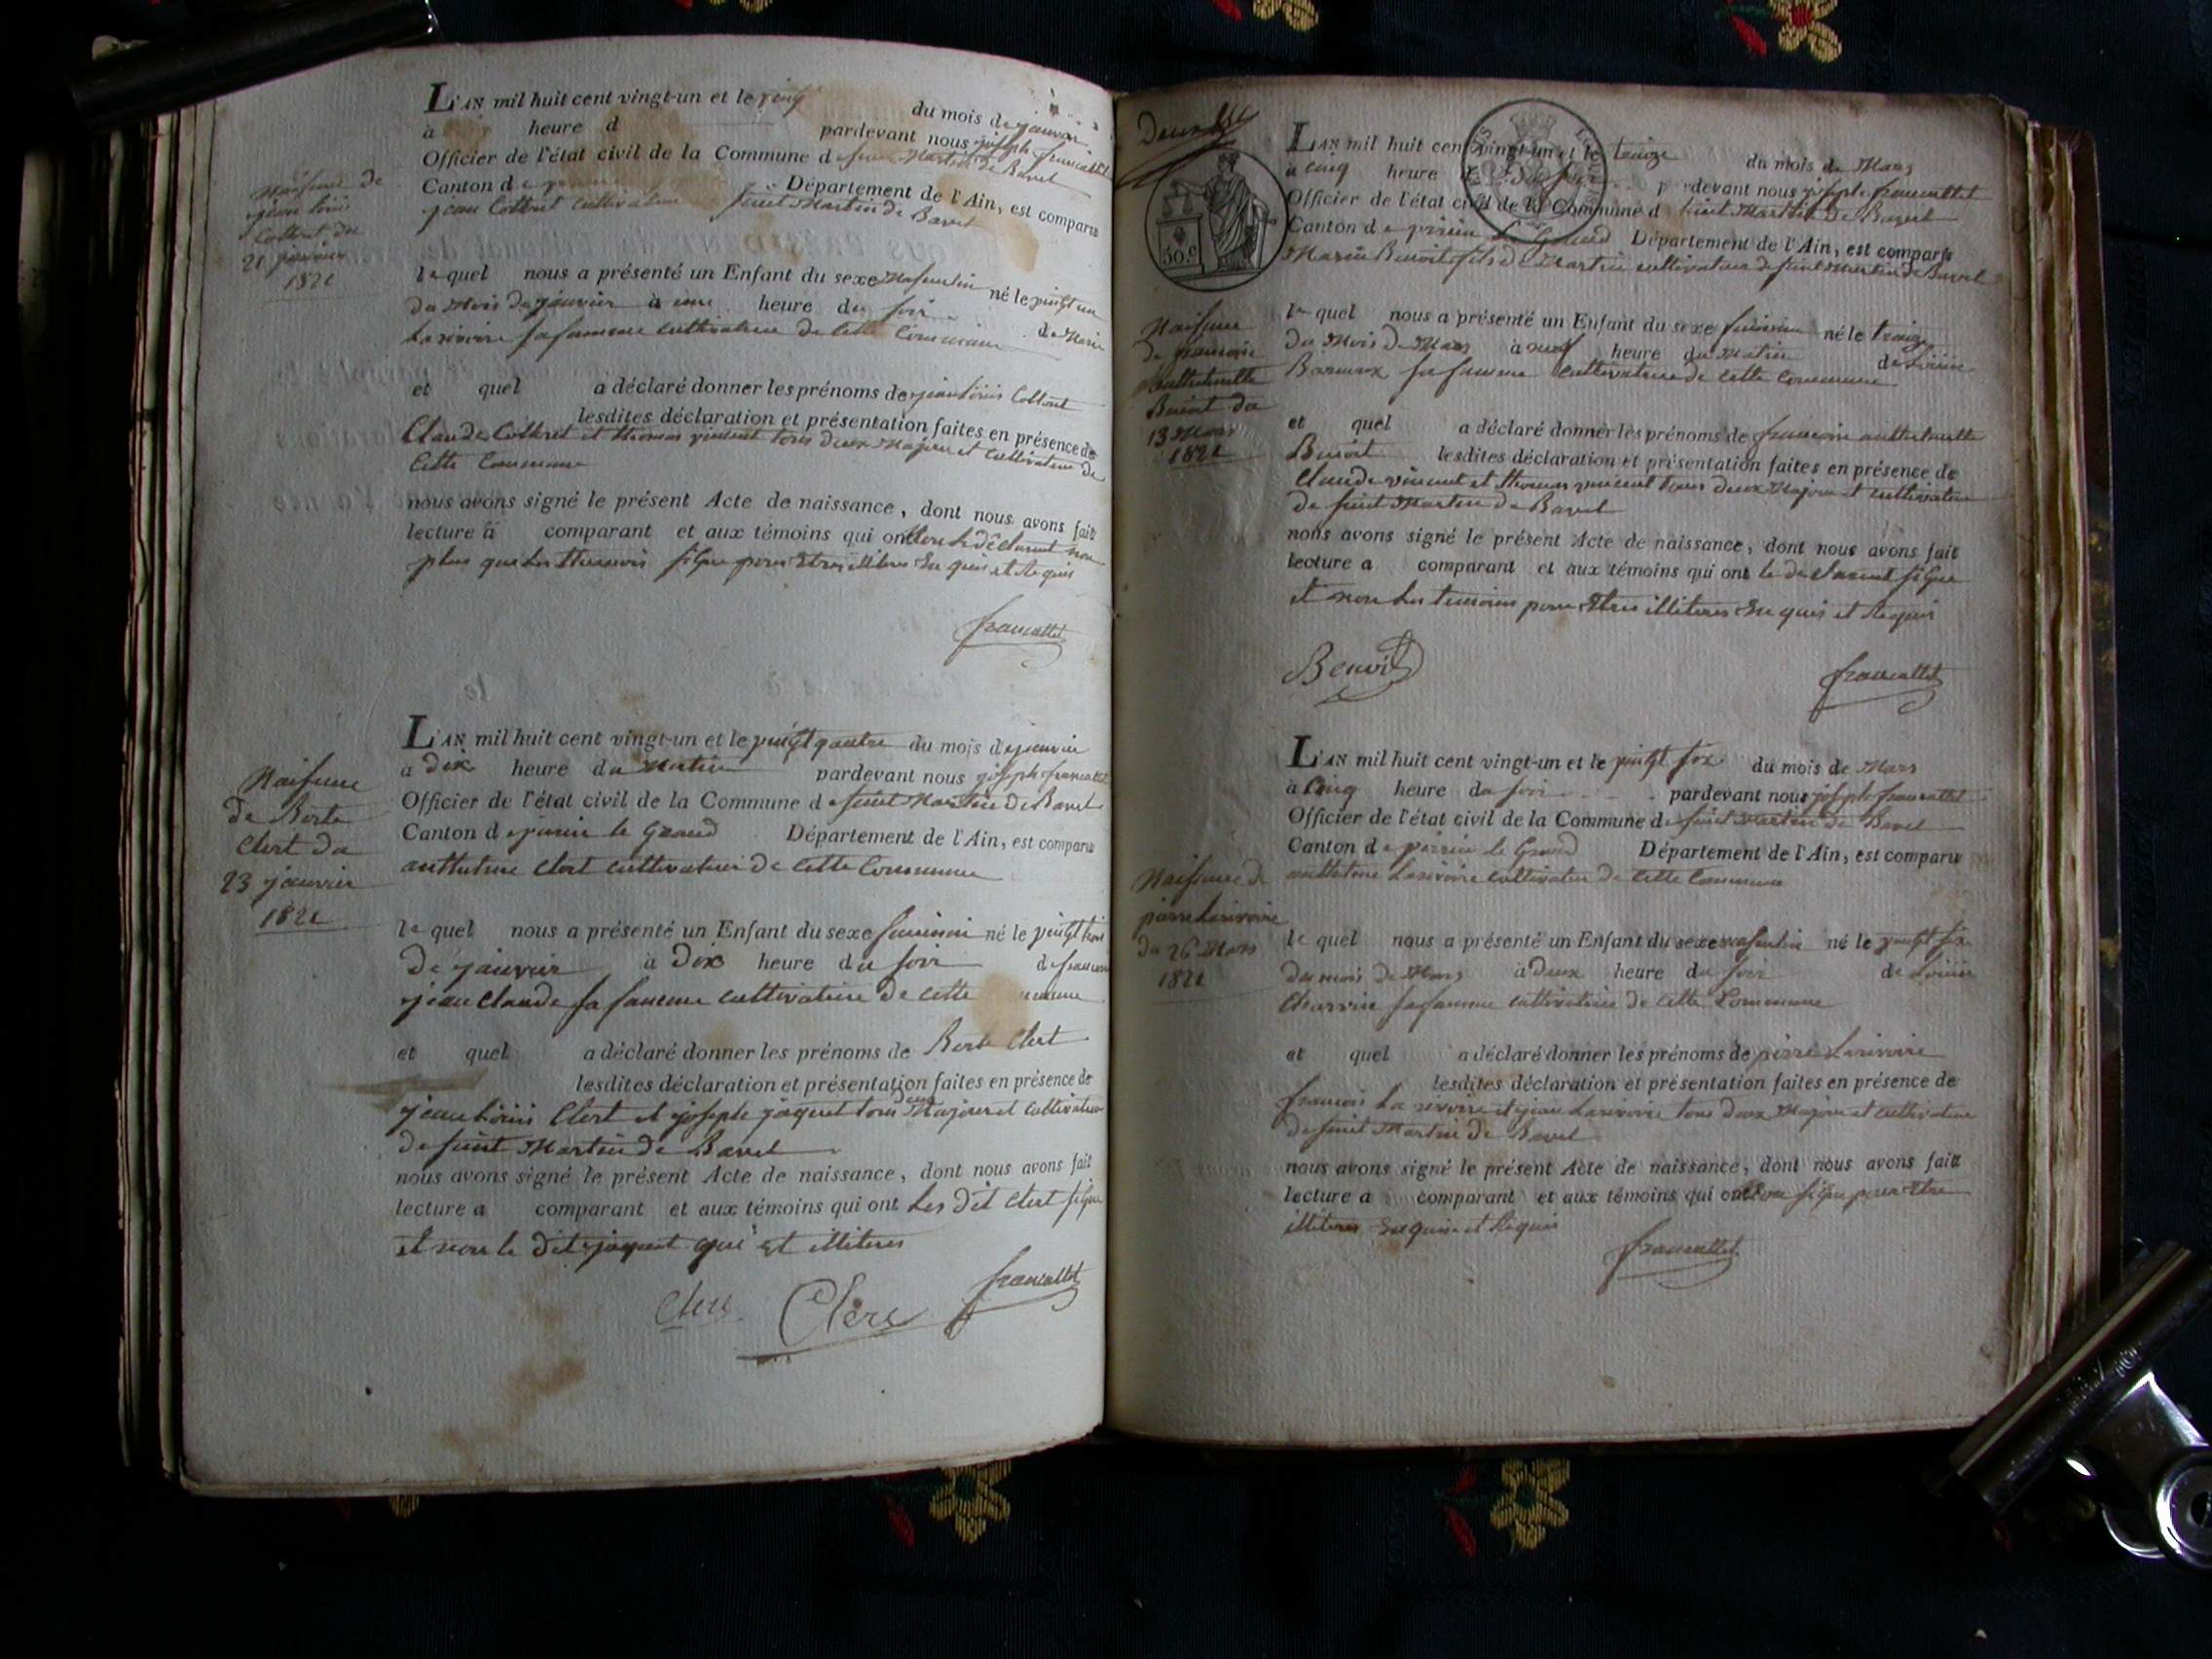 L'AN mil huit cent vingt-un et le
du mois de janvier
à heure d pardevant nous joseph francallet
Officier de l'état civil de la Commune de saint Martin de Bavel
Canton de Département de l'Ain, est comparu
jean Collret cultivateur saint Martin de Bavel
Naissance de
jean louis
Collret du
21 janvier
1821
le quel nous a présenté un Enfant du sexe Masculin né le vingt un
du Mois de janvier à une heure du soir de Marie
Larivoire sa famme cultivatrice de cette Commune
et quel a déclaré donner les prénoms de jean louis Collret
lesdites déclaration et présentation faites en présence de
Claude Collret et thomas vincent tous deux Majeur et cultivateur de
cette Commune
nous avons signé le présent Acte de naissance, dont nous avons fait
lecture à comparant et aux témoins qui ont declarent non
plus que les temoins signe pour etres illiteres enquis et Requis
francallet
L'AN mil huit cent vingt-un et le vingt quatre du mois de janvier
à dix heure du Matin pardevant nous joseph francallet
Officier de l'état civil de la Commune de saint Martin de Bavel
Canton de virieu le Grand Département de l'Ain, est comparu
Clert cultivateur de cette Commune
Naissance
de Berte
Clert du
23 janvier
1821
le quel nous a présenté un Enfant du sexe feminin né le vingt trois
de janvier à Dix heure du soir de
jean Claude sa famme cultivatrice de cette
et quel a déclaré donner les prénoms de Berte Clert
lesdites déclaration et présentation faites en présence de
jean louis Clert et joseph jaquet tous deux Majeur et cultivateur
de saint Martin de Bavel
nous avons signé le présent Acte de naissance, dont nous avons fait
lecture a comparant et aux témoins qui ont Les dit Clert signe
et non le dit jaquet qui est illiteres
Clerc Clerc francallet
50.C
L'AN mil huit cent vingt-un et le treize du mois de Mars
à cinq heure d pardevant nous joseph francallet
Officier de l'état civil de la Commune de saint Martin de Bavel
Canton de virieu le Grand Département de l'Ain, est comparu
Benoit fils de Martin cultivateur de saint Martin de Bavel
Naissance
de francoise
Benoit du
13 Mars
1821
le quel nous a présenté un Enfant du sexe feminin né le treize
du Mois de Mars à neuf heure du Matin de Louise
sa famme cultivatrice de cette Commune
et quel a déclaré donner les prénoms de francoise
Benoit lesdites déclaration et présentation faites en présence de
Claude vincent et thomas vincent tous deux Majeur et cultivateur
de saint Martin de Bavel
nous avons signé le présent Acte de naissance, dont nous avons fait
lecture a comparant et aux témoins qui ont le declarent signe
et non Les temoins pour etres illiteres enquis et Requis
Benoit francallet
L'AN mil huit cent vingt-un et le vingt six du mois de Mars
à Cinq heure du soir pardevant nous joseph francallet
Officier de l'état civil de la Commune de saint Martin de Bavel
Canton de virieu le Grand Département de l'Ain, est comparu
Larivoire cultivateur de cette Commune
Naissance de
pierre Larivoire
du 26 Mars
1821
le quel nous a présenté un Enfant du sexe masculin né le vingt six
du mois de Mars à deux heure du soir de Louise
Charvin sa famme cultivatrice de cette Commune
et quel a déclaré donner les prénoms de pierre Larivoire
lesdites déclaration et présentation faites en présence de
francois La rivoire et jean Larivoire tous deux Majeur et cultivateur
de saint Martin de Bavel
nous avons signé le présent Acte de naissance, dont nous avons fait
lecture a comparant et aux témoins qui ont non signe pour etre
illiteres enquis et Requis
francallet